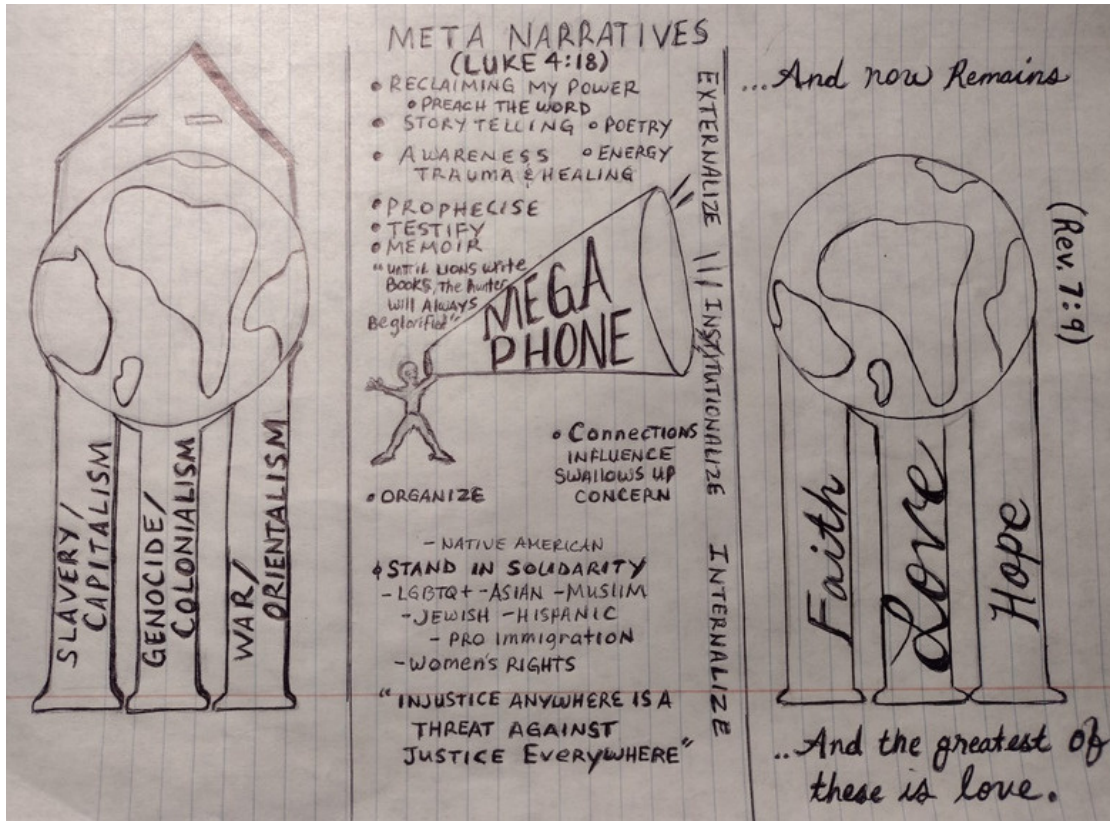 SLAVERY/
CAPITALISM
GENOCIDE/
COLONIALISM
WAR/
ORIENTALISM
META NARRATIVES
(LUKE 4:18)
• RECLAIMING MY POWER
• PREACH THE WORD
• STORY TELLING • POETRY
• AWARENESS • ENERGY
TRAUMA & HEALING
• PROPHECISE
• TESTIFY
• MEMOIR
"UNTIL LIONS write
BOOKS, The Hunter
will Always
Be glorified"
MEGA
PHONE
• Connections
INFLUENCE
SWALLOWS UP
CONCERN
• ORGANIZE
- NATIVE AMERICAN
• STAND IN SOLIDARITY
- LGBTQ+ - ASIAN - MUSLIM
- JEWISH - HISPANIC
- PRO IMMIGRATION
- WOMEN'S RIGHTS
"INJUSTICE ANYWHERE IS A
THREAT AGAINST
JUSTICE EVERYWHERE"
EXTERNALIZE /// INSTITUTIONALIZE INTERNALIZE
...And now Remains
(Rev. 7:9)
Faith
Love
Hope
...And the greatest Of
these is love.